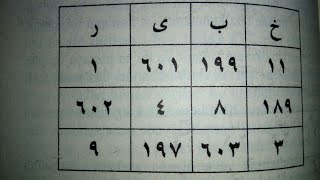 خ ب ی ر
١١ ١٩٩ ٦٠١ ١
١٨٩ ٨ ٤ ٦٠٢
٣ ٦٠٣ ١٩٧ ٩